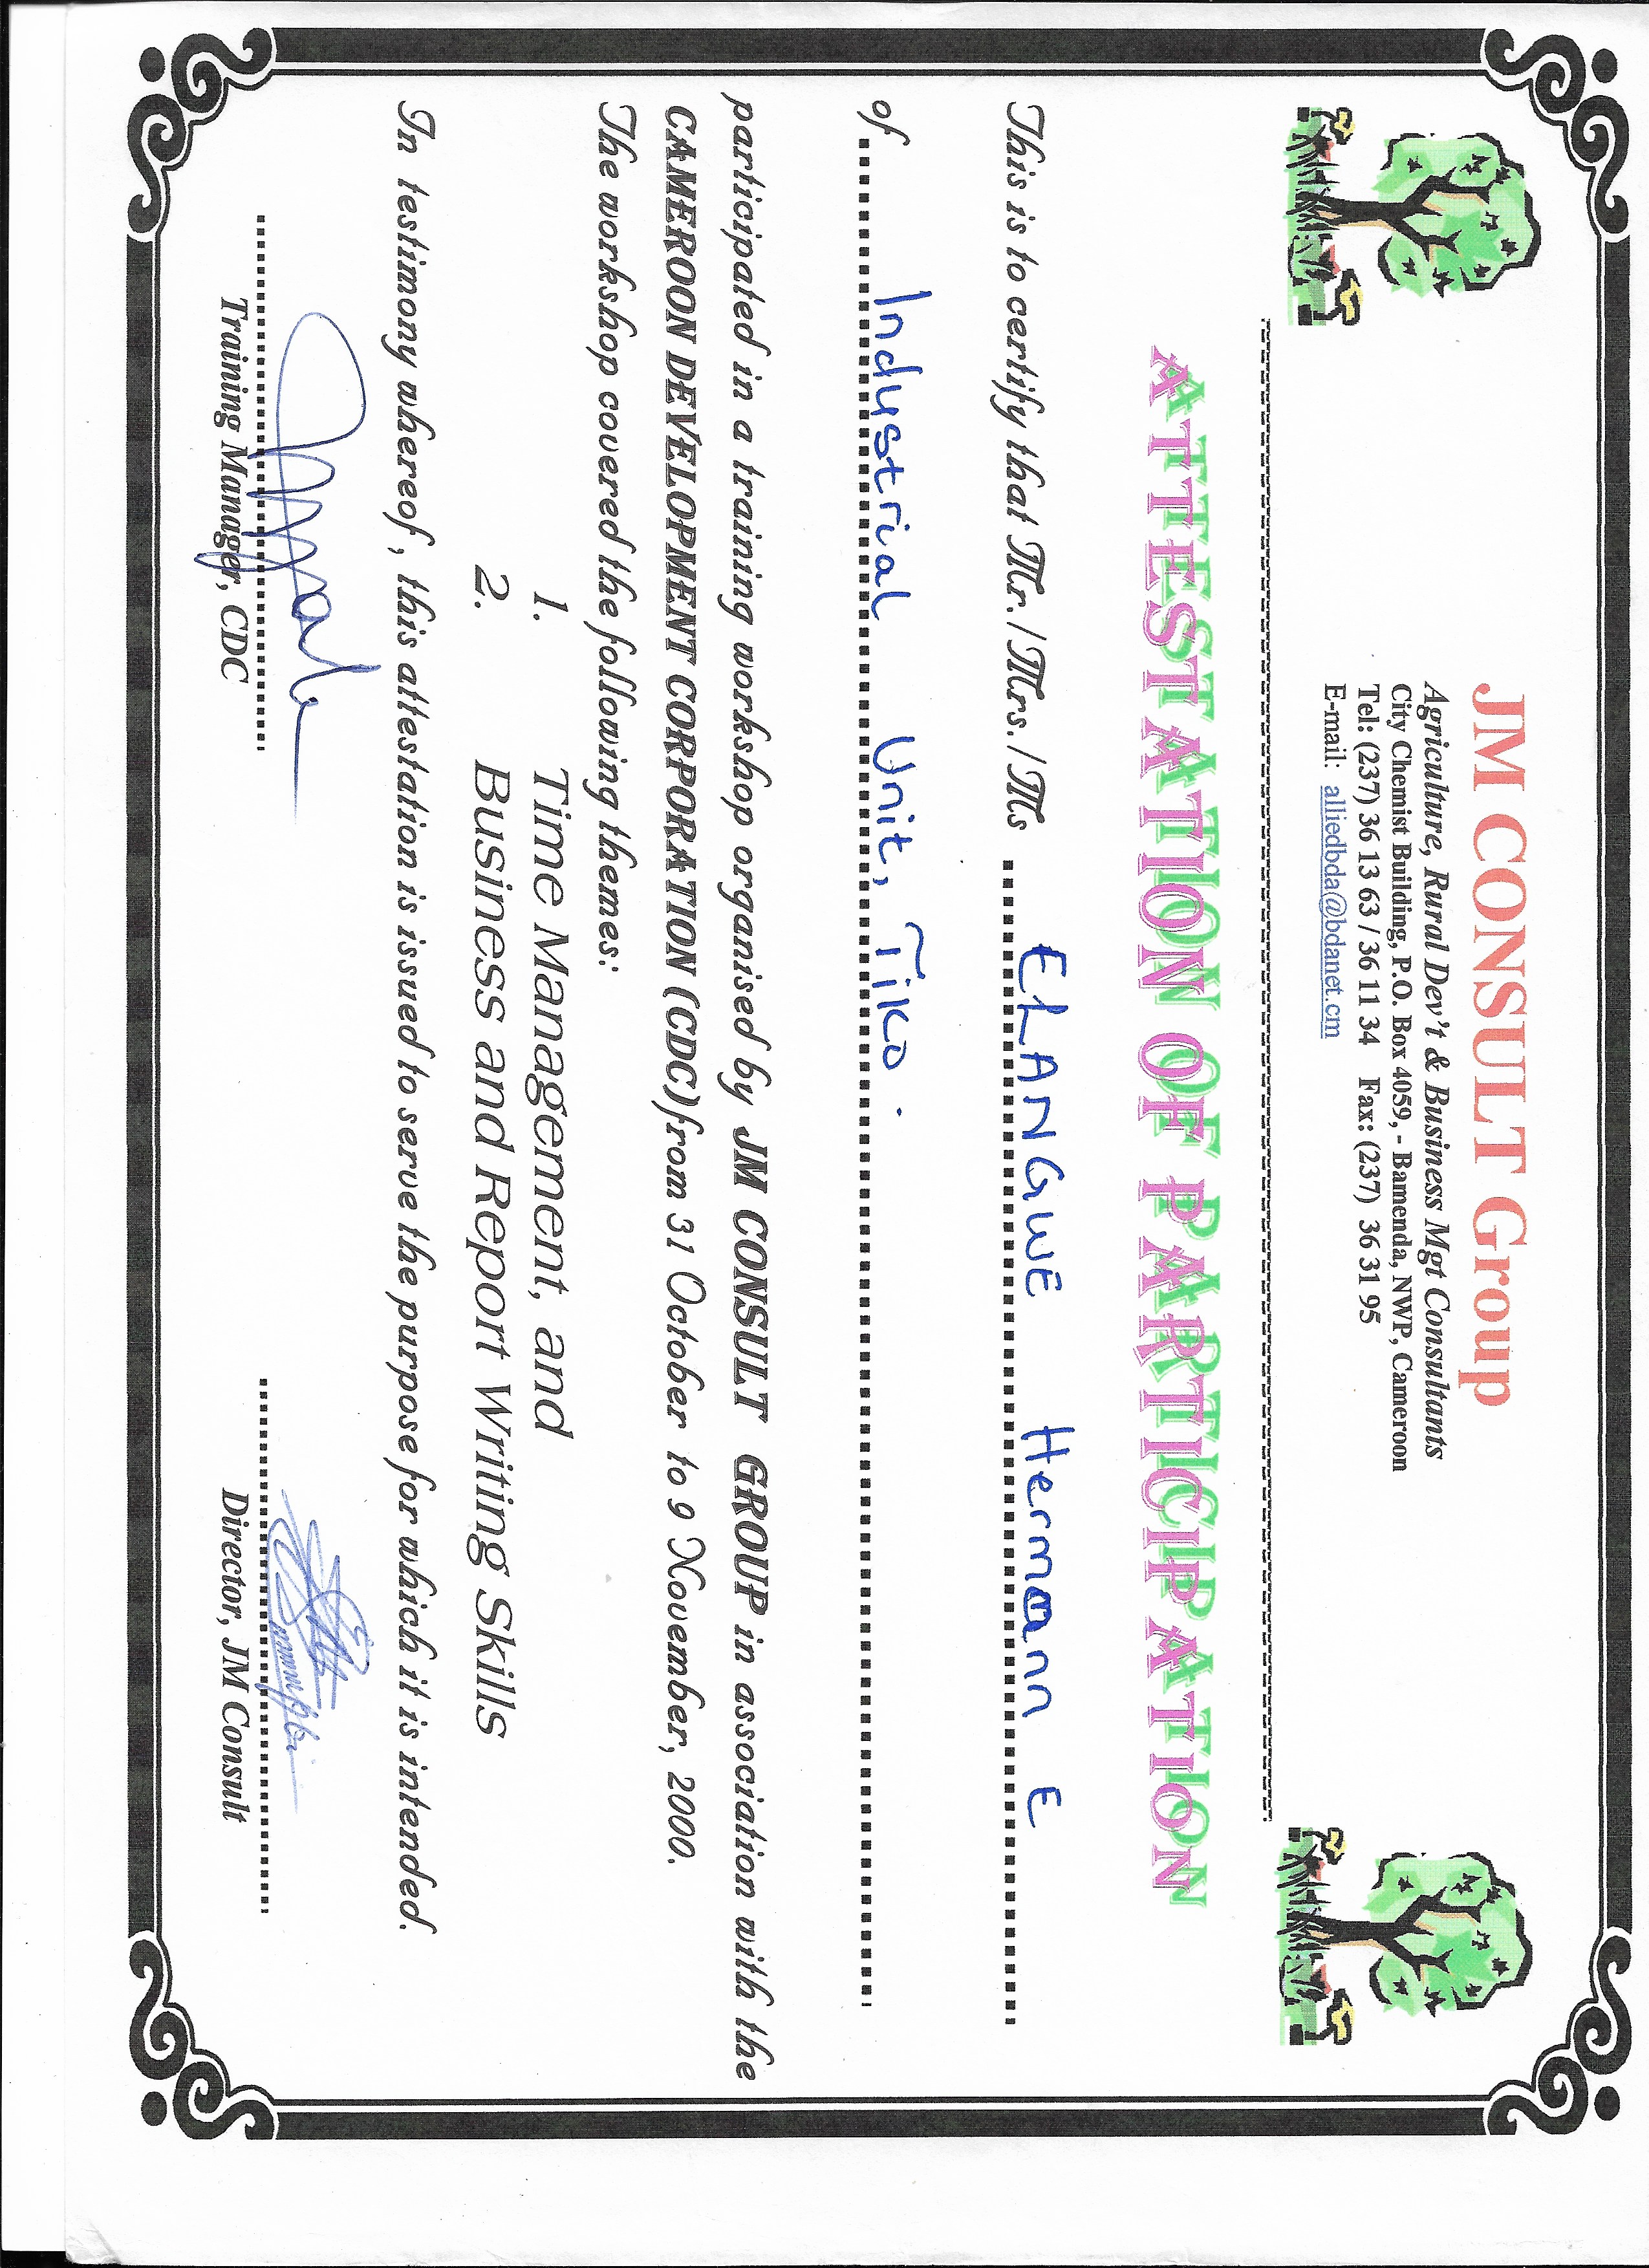 JM CONSULT Group
Agriculture, Rural Dev't & Business Mgt Consultants
City Chemist Building, P.O. Box 4059, - Bamenda, NWP, Cameroon
Tel: (237) 36 13 63 / 36 11 34 Fax: (237) 36 31 95
E-mail: alliedbda@bdanet.cm
ATTESTATION OF PARTICIPATION
This is to certify that Mr./Mrs./Ms ELANGWE Hermann E
of Industrial Unit, Tiko.
participated in a training workshop organised by JM CONSULT GROUP in association with the
CAMEROON DEVELOPMENT CORPORATION (CDC) from 31 October to 9 November, 2000.
The workshop covered the following themes:
1. Time Management, and
2. Business and Report Writing Skills
In testimony whereof, this attestation is issued to serve the purpose for which it is intended.
Training Manager, CDC
Director, JM Consult